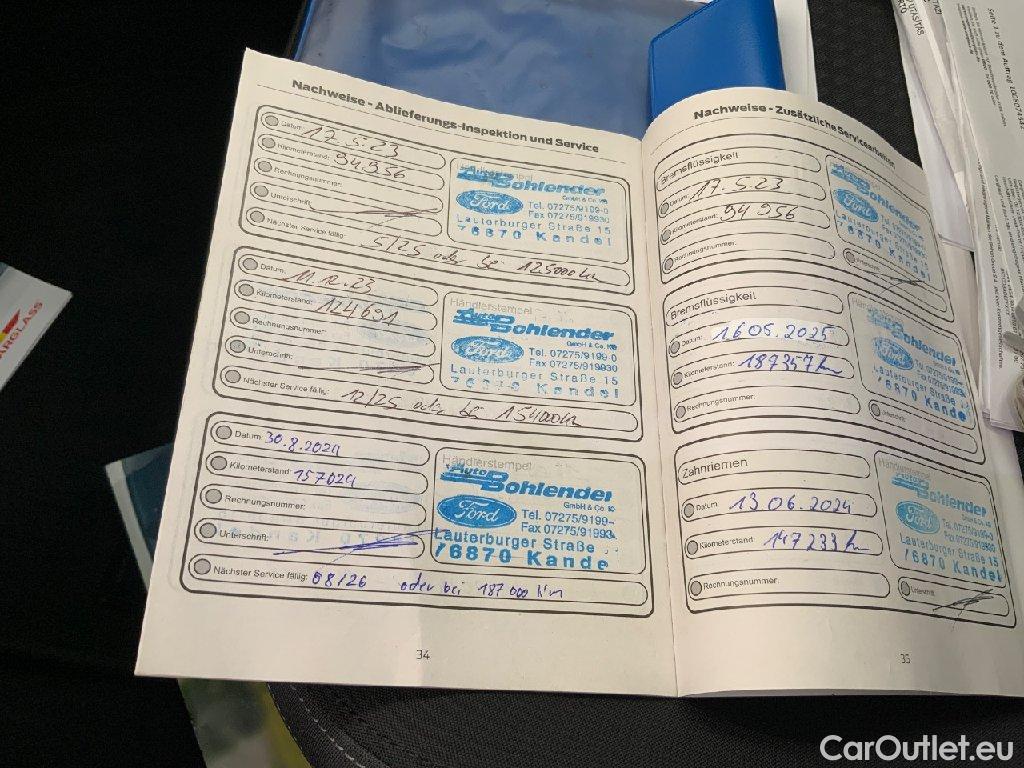 Nachweise - Ablieferungs-Inspektion und Service
Datum: 17.5.23
Kilometerstand: 94.956
Rechnungsnummer:
Unterschrift:
Nächster Service fällig: 5/25 oder bei 125000 km
Händlerstempel
Auto Bohlender
GmbH & Co. KG
Ford
Tel. 07275/9199-0
Fax 07275/919930
Lauterburger Straße 15
76870 Kandel
Datum: 11.12.23
Kilometerstand: 124691
Rechnungsnummer:
Unterschrift:
Nächster Service fällig: 12/25 oder bei 154000 km
Händlerstempel
Auto Bohlender
GmbH & Co. KG
Ford
Tel. 07275/9199-0
Fax 07275/919930
Lauterburger Straße 15
76870 Kandel
Datum: 30.8.2024
Kilometerstand: 157024
Rechnungsnummer:
Unterschrift:
Nächster Service fällig: 08/26 oder bei 187 000 km
Händlerstempel
Auto Bohlender
GmbH & Co. KG
Ford
Tel. 07275/9199-
Fax 07275/91993
Lauterburger Straße
76870 Kande
34
Nachweise - Zusätzliche Servicearbeiten
Bremsflüssigkeit
Datum: 17.5.23
Kilometerstand: 94 956
Rechnungsnummer:
Unterschrift:
Ford
Lauterburger
76870 Kandel
Bremsflüssigkeit
Datum: 16.05.2025
Kilometerstand: 187357 km
Rechnungsnummer:
Unterschrift:
Händlerstempel
Auto Bohlender
GmbH & Co. KG
Ford
Tel. 07275/9199-
Fax 07275/919930
Lauterburger Straße
76870 Kande
Zahnriemen
Datum: 13.06.2024
Kilometerstand: 147233 km
Rechnungsnummer:
Unterschrift:
Händlerstempel
Auto Bohlender
GmbH & Co. KG
Ford
Tel. 07275/9199-0
Fax 07275/919930
Lauterburger Straße 15
76870 Kandel
35
CarOutlet.eu